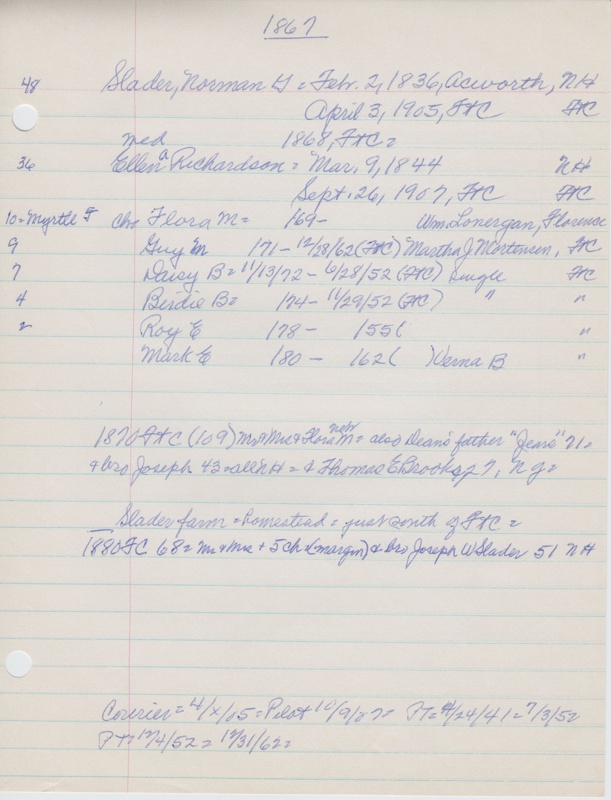 1867
48 Slader, Norman G = Feb. 2, 1836, Acworth, NH
April 3, 1905, FtC FtC
med 1868, FtC =
36 Ellen a Richardson = Mar. 9, 1844 NH
Sept. 26, 1907, FtC FtC
10 = Myrtle F Chn Flora M = 169- Wm. Lonergan, Florence
9 Guy M 171 - 12/28/62 (FtC) Martha J Mortensen, FtC
7 Daisy B = 11/13/72 - 6/28/52 (FtC) Single FtC
4 Birdie B = 174 - 11/29/52 (FtC) " "
2 Roy E 178 - 155( "
Mark E 180 - 162( ) Verna B "
1870 FtC (109) Mr & Mrs & Flora M = also Dean's father "Jears" 71 =
& bro Joseph 43 = all NH = & Thomas E Brooks 7, NJ =
Slader farm = homestead = just south of FtC =
1880 FC 68 = Mr & Mrs + 5 ch (margin) & bro Joseph W Slader 51 NH
Courier = 4/x/05 = Pilot 10/9/07 = PT = 4/24/41 = 7/3/52
PT = 12/4/52 = 12/31/62 =